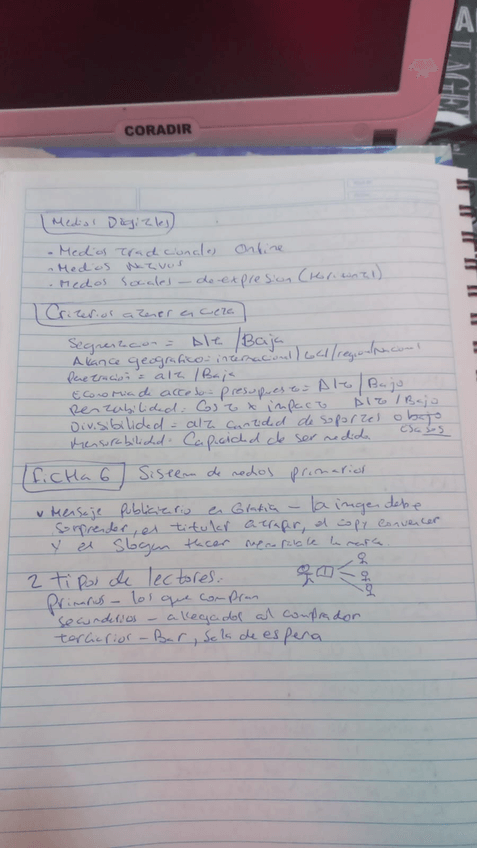 CORADIR
Medios Digitales
• Medios tradicionales Online
• Medios Nativos
• Medios Sociales – de expresion (Horizontal)
Criterios a tener en cuenta
Segmentacion = Alta / Baja
Alcance geografico = internacional / local / regional / nacional
Penetracion = alta / Baja
Economia de acceso = presupuesto = Alto / Bajo
Rentabilidad = Costo x impacto Alto / Bajo
Divisibilidad = alta cantidad de soportes o bajo
Mensurabilidad = Capacidad de ser medida
FICHA 6 Sistema de medios primarios
Mensaje Publicitario en Grafica – la imagen debe
sorprender, el titular atrapar, el copy convencer
Y el Slogan hacer memorable la marca.
2 tipos de lectores.
Primarios – los que compran
secundarios – allegados al comprador
terciarios – Bar, Sala de espera